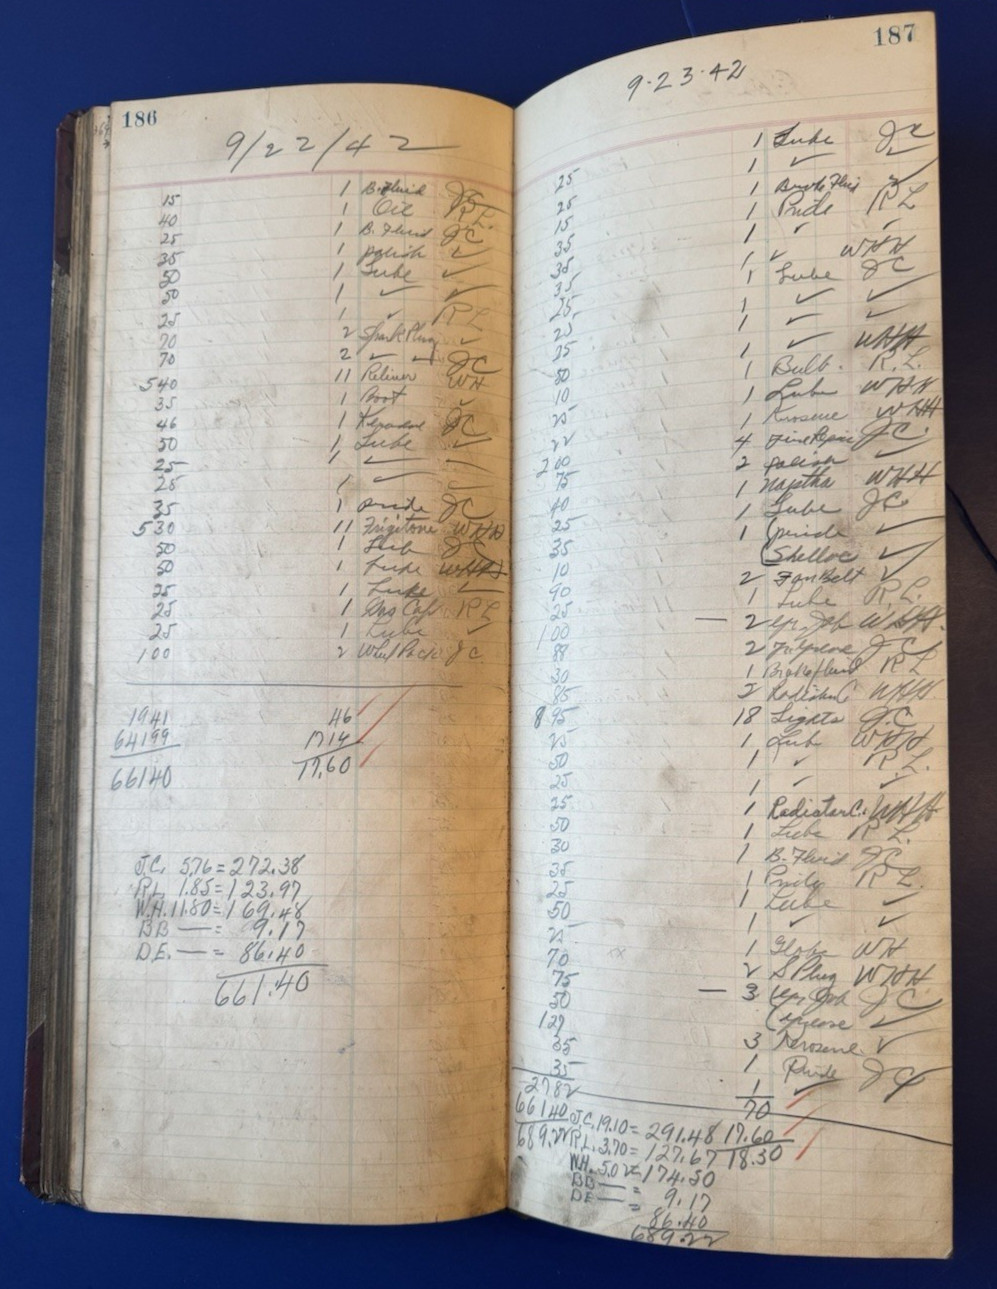 186
9/22/42
15 1 B. Fluid JC
40 1 Oil R.L.
25 1 B. Fluid JC
35 1 polish ✓
50 1 Lube ✓
50 1 ✓ ✓
25 1 ✓ RL
70 2 Spark Plug ✓
70 2 ✓ ✓ JC
540 11 Reliner WH
35 1 Boot ✓
46 1 Kerosene JC
50 1 Lube ✓
25 1 ✓
25 1 ✓
35 1 pride JC
530 11 Frigitone WHH
50 1 Lub JC
50 1 Lube WHH
25 1 Lube
25 1 Gas Cap RL
25 1 Lube ✓
100 2 Wheel Pack JC
1941 46
64199 1714
66140 17.60
J.C. 5.76 = 272.38
R.L. 1.85 = 123.97
W.H. 11.80 = 169.48
BB — = 9.17
D.E. — = 86.40
661.40
187
9-23-42
25 1 Lube JC
25 1 ✓ ✓
15 1 Brake Fluid ✓
35 1 Pride RL
35 1 ✓ ✓
35 1 ✓ WHH
25 1 Lube JC
25 1 ✓ ✓
25 1 ✓ ✓
50 1 ✓ WHH
10 1 Bulb. R.L.
25 1 Lube WHH
22 1 Krosene WHH
200 4 Tire Repair J.C.
75 2 polish ✓
40 1 Naptha WHH
25 1 Lube JC
35 1 (pride ✓
10 (Shellac ✓
90 2 Fan Belt ✓
25 1 Lube R.L.
100 — 2 WHH.
88 2 JC
30 1 Brake fluid RL
85 2 Radiator C WHH
895 18 Lights J.C
25 1 Lub WHH
50 1 ✓ R.L.
25 1 ✓ ✓
25 1 Radiator C. WHH
50 1 Lube R.L.
30 1 B. Fluid JC
35 1 R.L.
25 1 Lube ✓
50 1 ✓ ✓
25 1 Globe WH
70 2 S Plug WHH
75 — 3 JC
50 (grease ✓
129 3 Kerosene ✓
35 1 Pride JC
35 1 ✓
2782 70
66140 17.60
689.22 18.30
J.C. 19.10 = 291.48
R.L. 3.70 = 127.67
W.H. 5.02 = 174.50
BB — = 9.17
DE — = 86.40
689.22